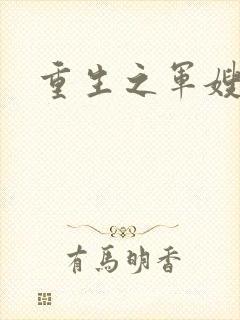 重生之軍嫂
有馬明香